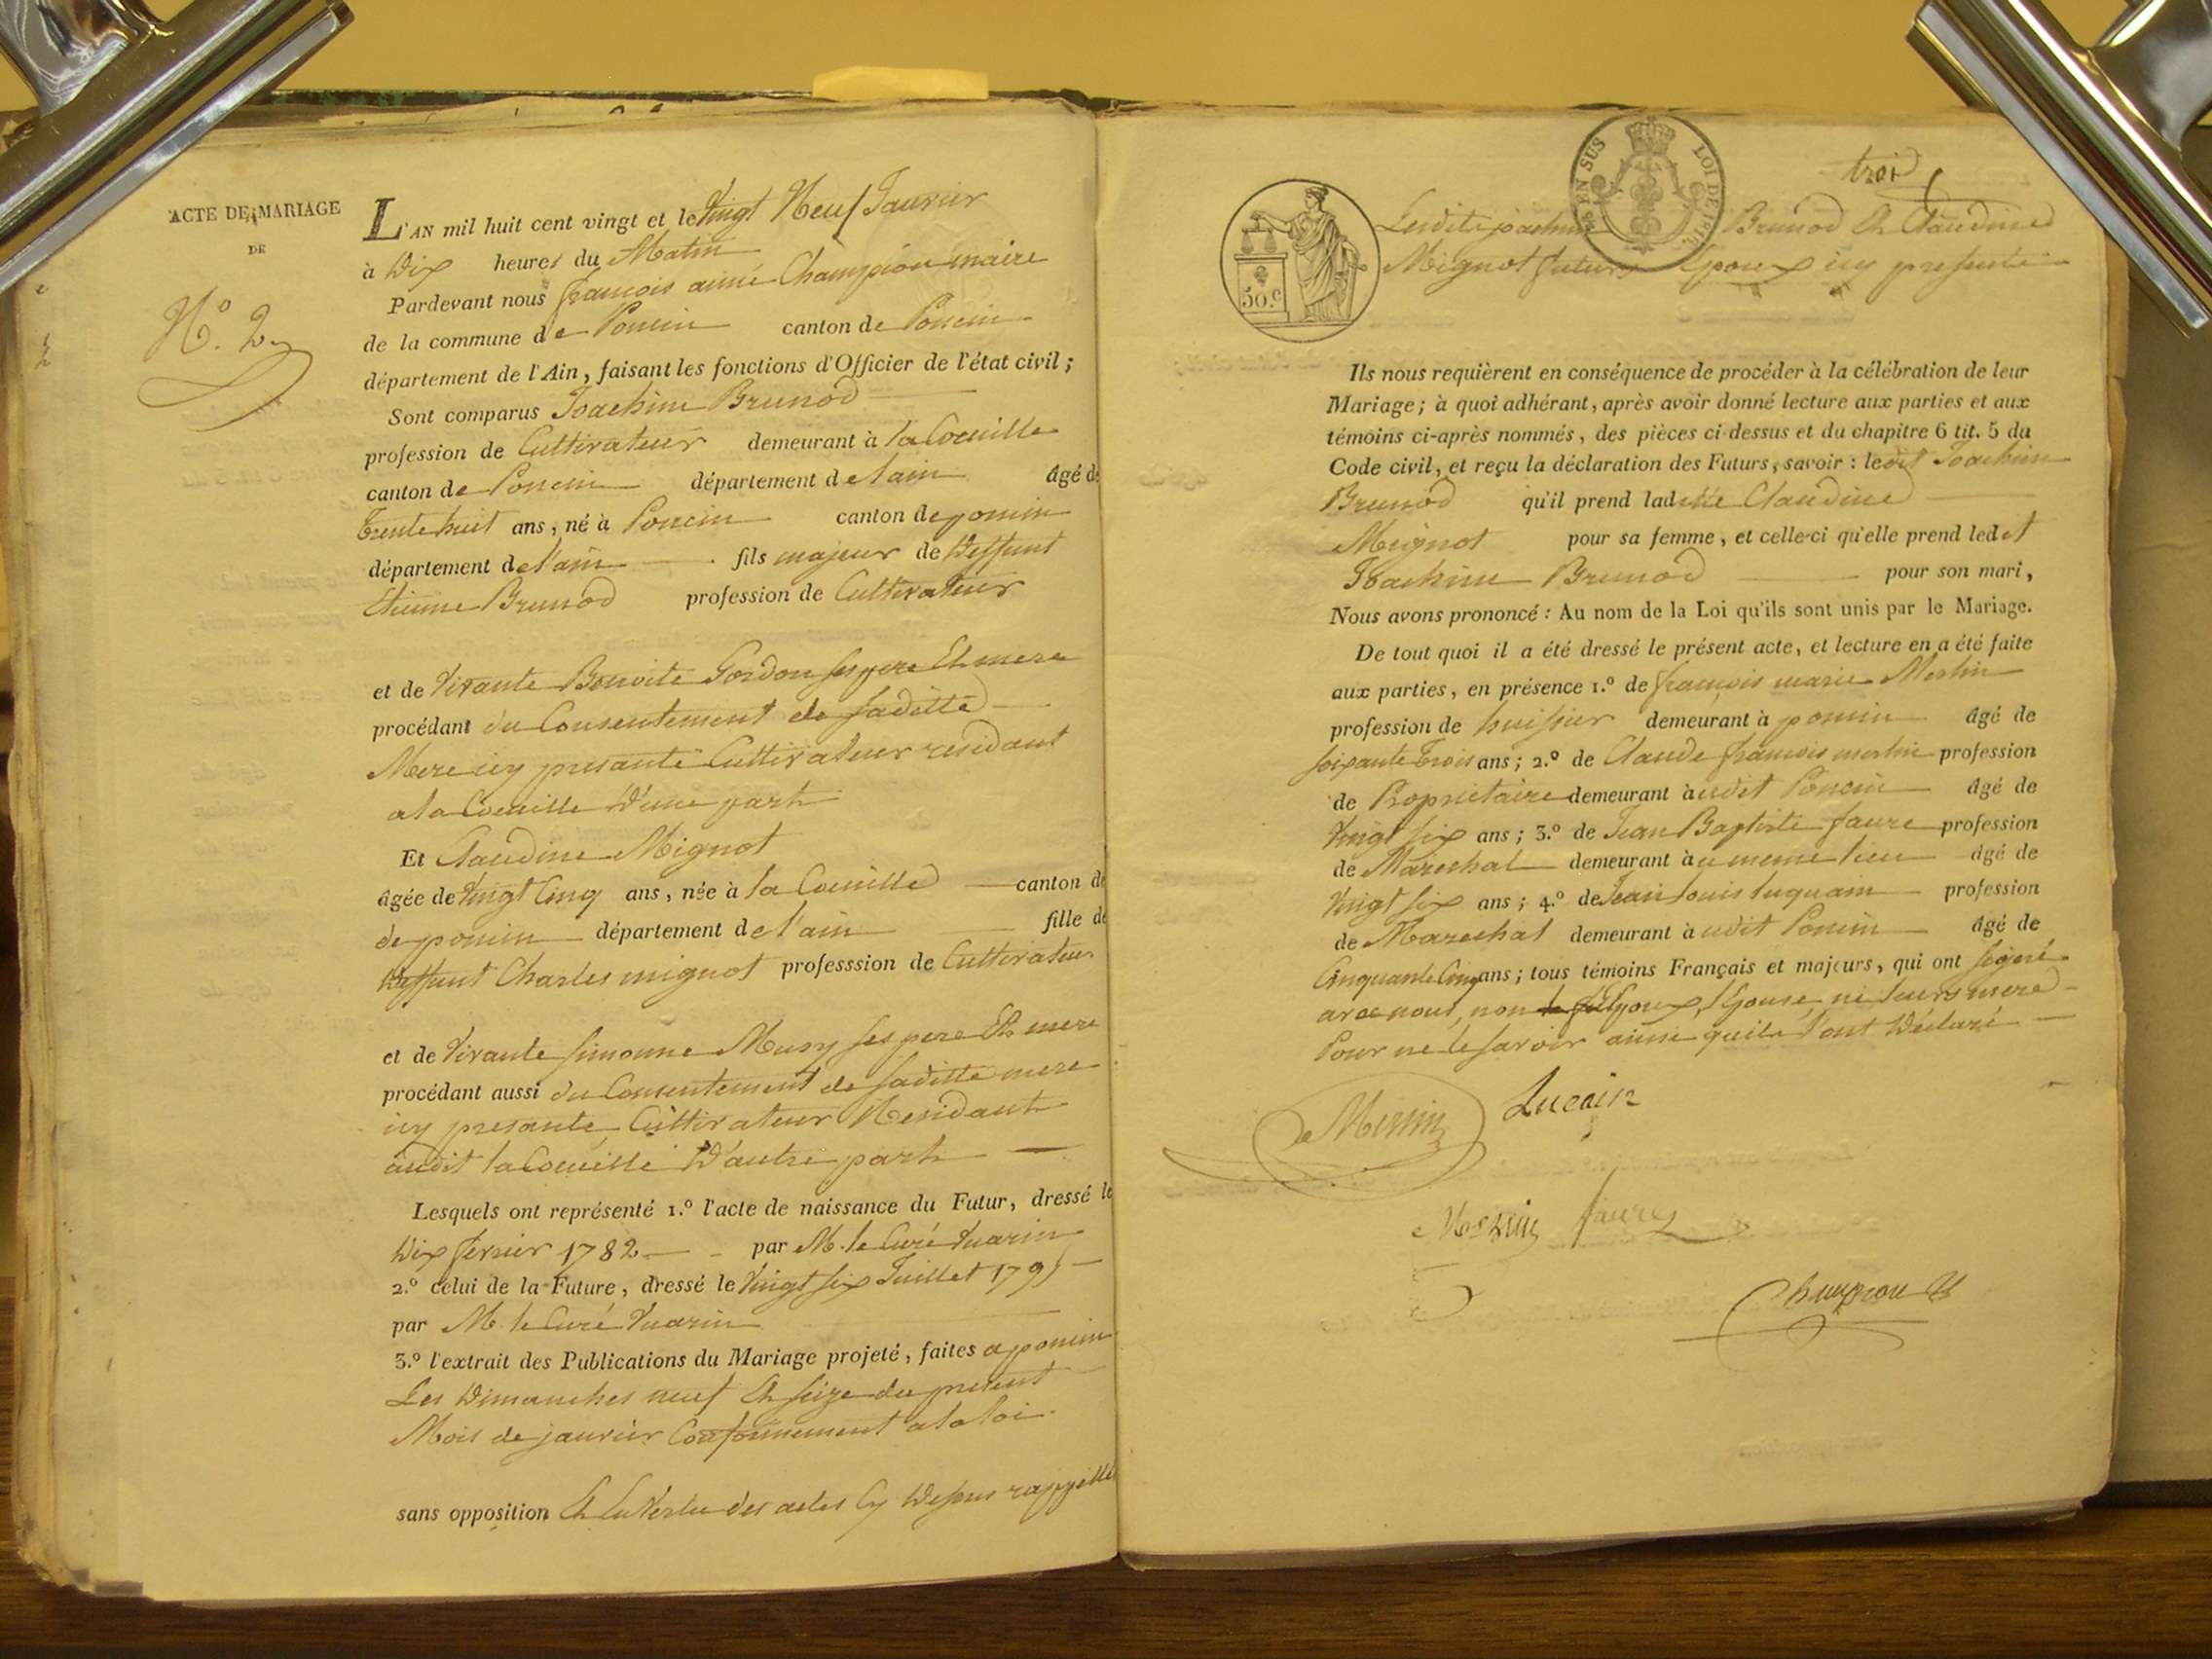 ACTE DE MARIAGE
DE
N.º 2.
L'AN mil huit cent vingt et le Vingt Neuf Janvier
à Dix heures du Matin
Pardevant nous françois aimé Champion maire
de la commune de Poncin canton de Poncin
département de l'Ain, faisant les fonctions d'Officier de l'état civil;
Sont comparus Joachim Brunod
profession de Cultivateur demeurant à la Coeuille
canton de Poncin département de lain âgé de
Trente huit ans, né à Poncin canton de poncin
département de l'ain fils majeur de Deffunt
Etienne Brunod profession de Cultivateur
et de Vivante Benoite Gordon ses pere Et mere
procédant du Consentement de saditte
Mere icy presante Cultivateur residant
a la Coeuille D'une part
Et Claudine Mignot
âgée de Vingt Cinq ans, née à la Coeuille canton de
de poncin département de l'ain fille de
Deffunt Charles mignot professsion de Cultivateur
et de Vivante simonne Musy ses pere Et mere
procédant aussi du Consentement de saditte mere
icy presante Cultivateur Residant
audit la Coeuille D'autre part
Lesquels ont représenté 1.º l'acte de naissance du Futur, dressé le
Dix fevrier 1782 par M. le Curé Quarin
2.º celui de la Future, dressé le Vingt six Juillet 1795
par M. le Curé Quarin
3.º l'extrait des Publications du Mariage projeté, faites a poncin
Les Dimanches neuf Et seize du present
Mois de janvier Conformement a la loi
sans opposition Et En Vertu des actes Cy Dessus rappellé
trois
50.C
EN SUS
LOI DE 1816
Lesdits joachim Brunod Et Claudine
Mignot futurs Epoux icy presents
Ils nous requièrent en conséquence de procéder à la célébration de leur
Mariage; à quoi adhérant, après avoir donné lecture aux parties et aux
témoins ci-après nommés, des pièces ci-dessus et du chapitre 6 tit. 5 du
Code civil, et reçu la déclaration des Futurs, savoir: ledit Joachim
Brunod qu'il prend laditte Claudine
Mignot pour sa femme, et celle-ci qu'elle prend ledit
Joachim Brunod pour son mari,
Nous avons prononcé: Au nom de la Loi qu'ils sont unis par le Mariage.
De tout quoi il a été dressé le présent acte, et lecture en a été faite
aux parties, en présence 1.º de françois marie Merlin
profession de huissier demeurant à poncin âgé de
soixante Trois ans; 2.º de Claude françois merlin profession
de Propriétaire demeurant audit Poncin âgé de
Vingt six ans; 3.º de Jean Baptiste faure profession
de Marechal demeurant à u meme lieu âgé de
Vingt six ans; 4.º de Jean louis luquain profession
de Marechal demeurant à udit Poncin âgé de
Cinquante Cinq ans; tous témoins Français et majeurs, qui ont signé
avec nous, non Epoux, Epouse, ni leurs mere
Pour ne le savoir ainsi quils l'ont Déclaré
Merlin Lucain
Merlin faure
Champion